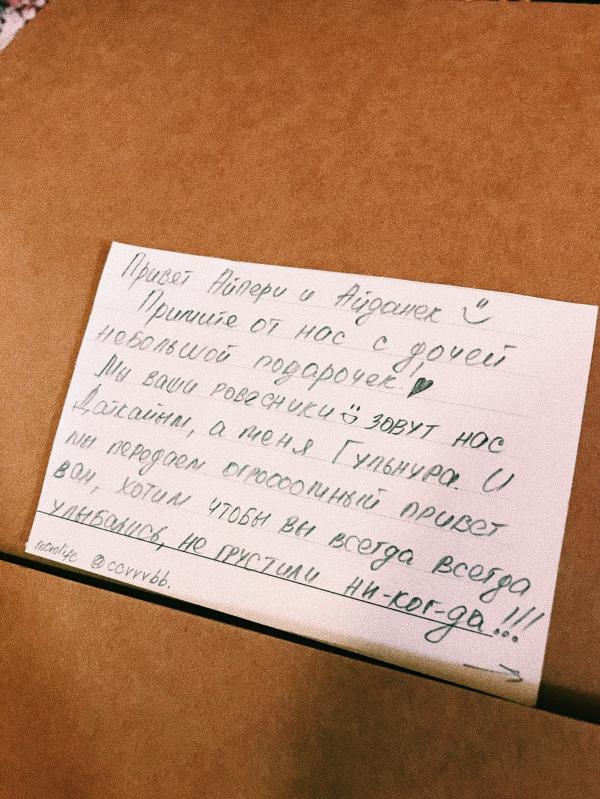 Привет Айпери и Айданек
Примите от нас с дочей
небольшой подарочек!
Мы ваши ровесники зовут нас
Дайкайым, а меня Гульнура. И
мы передаем огрооомный привет
вам, хотим чтобы вы всегда всегда
улыбались, не грустили ни-ког-да!!!
momlife @ccvvvbb.